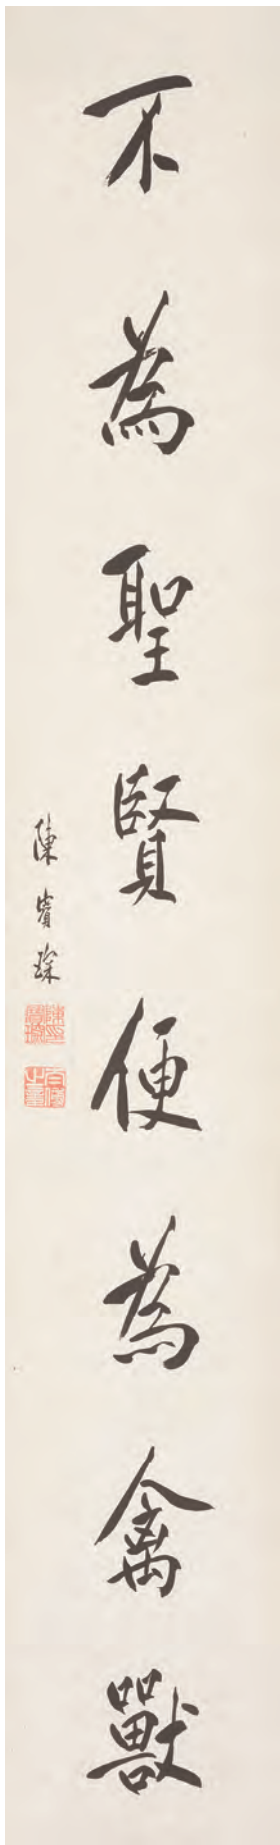 不為聖賢便為禽獸
陳寶琛